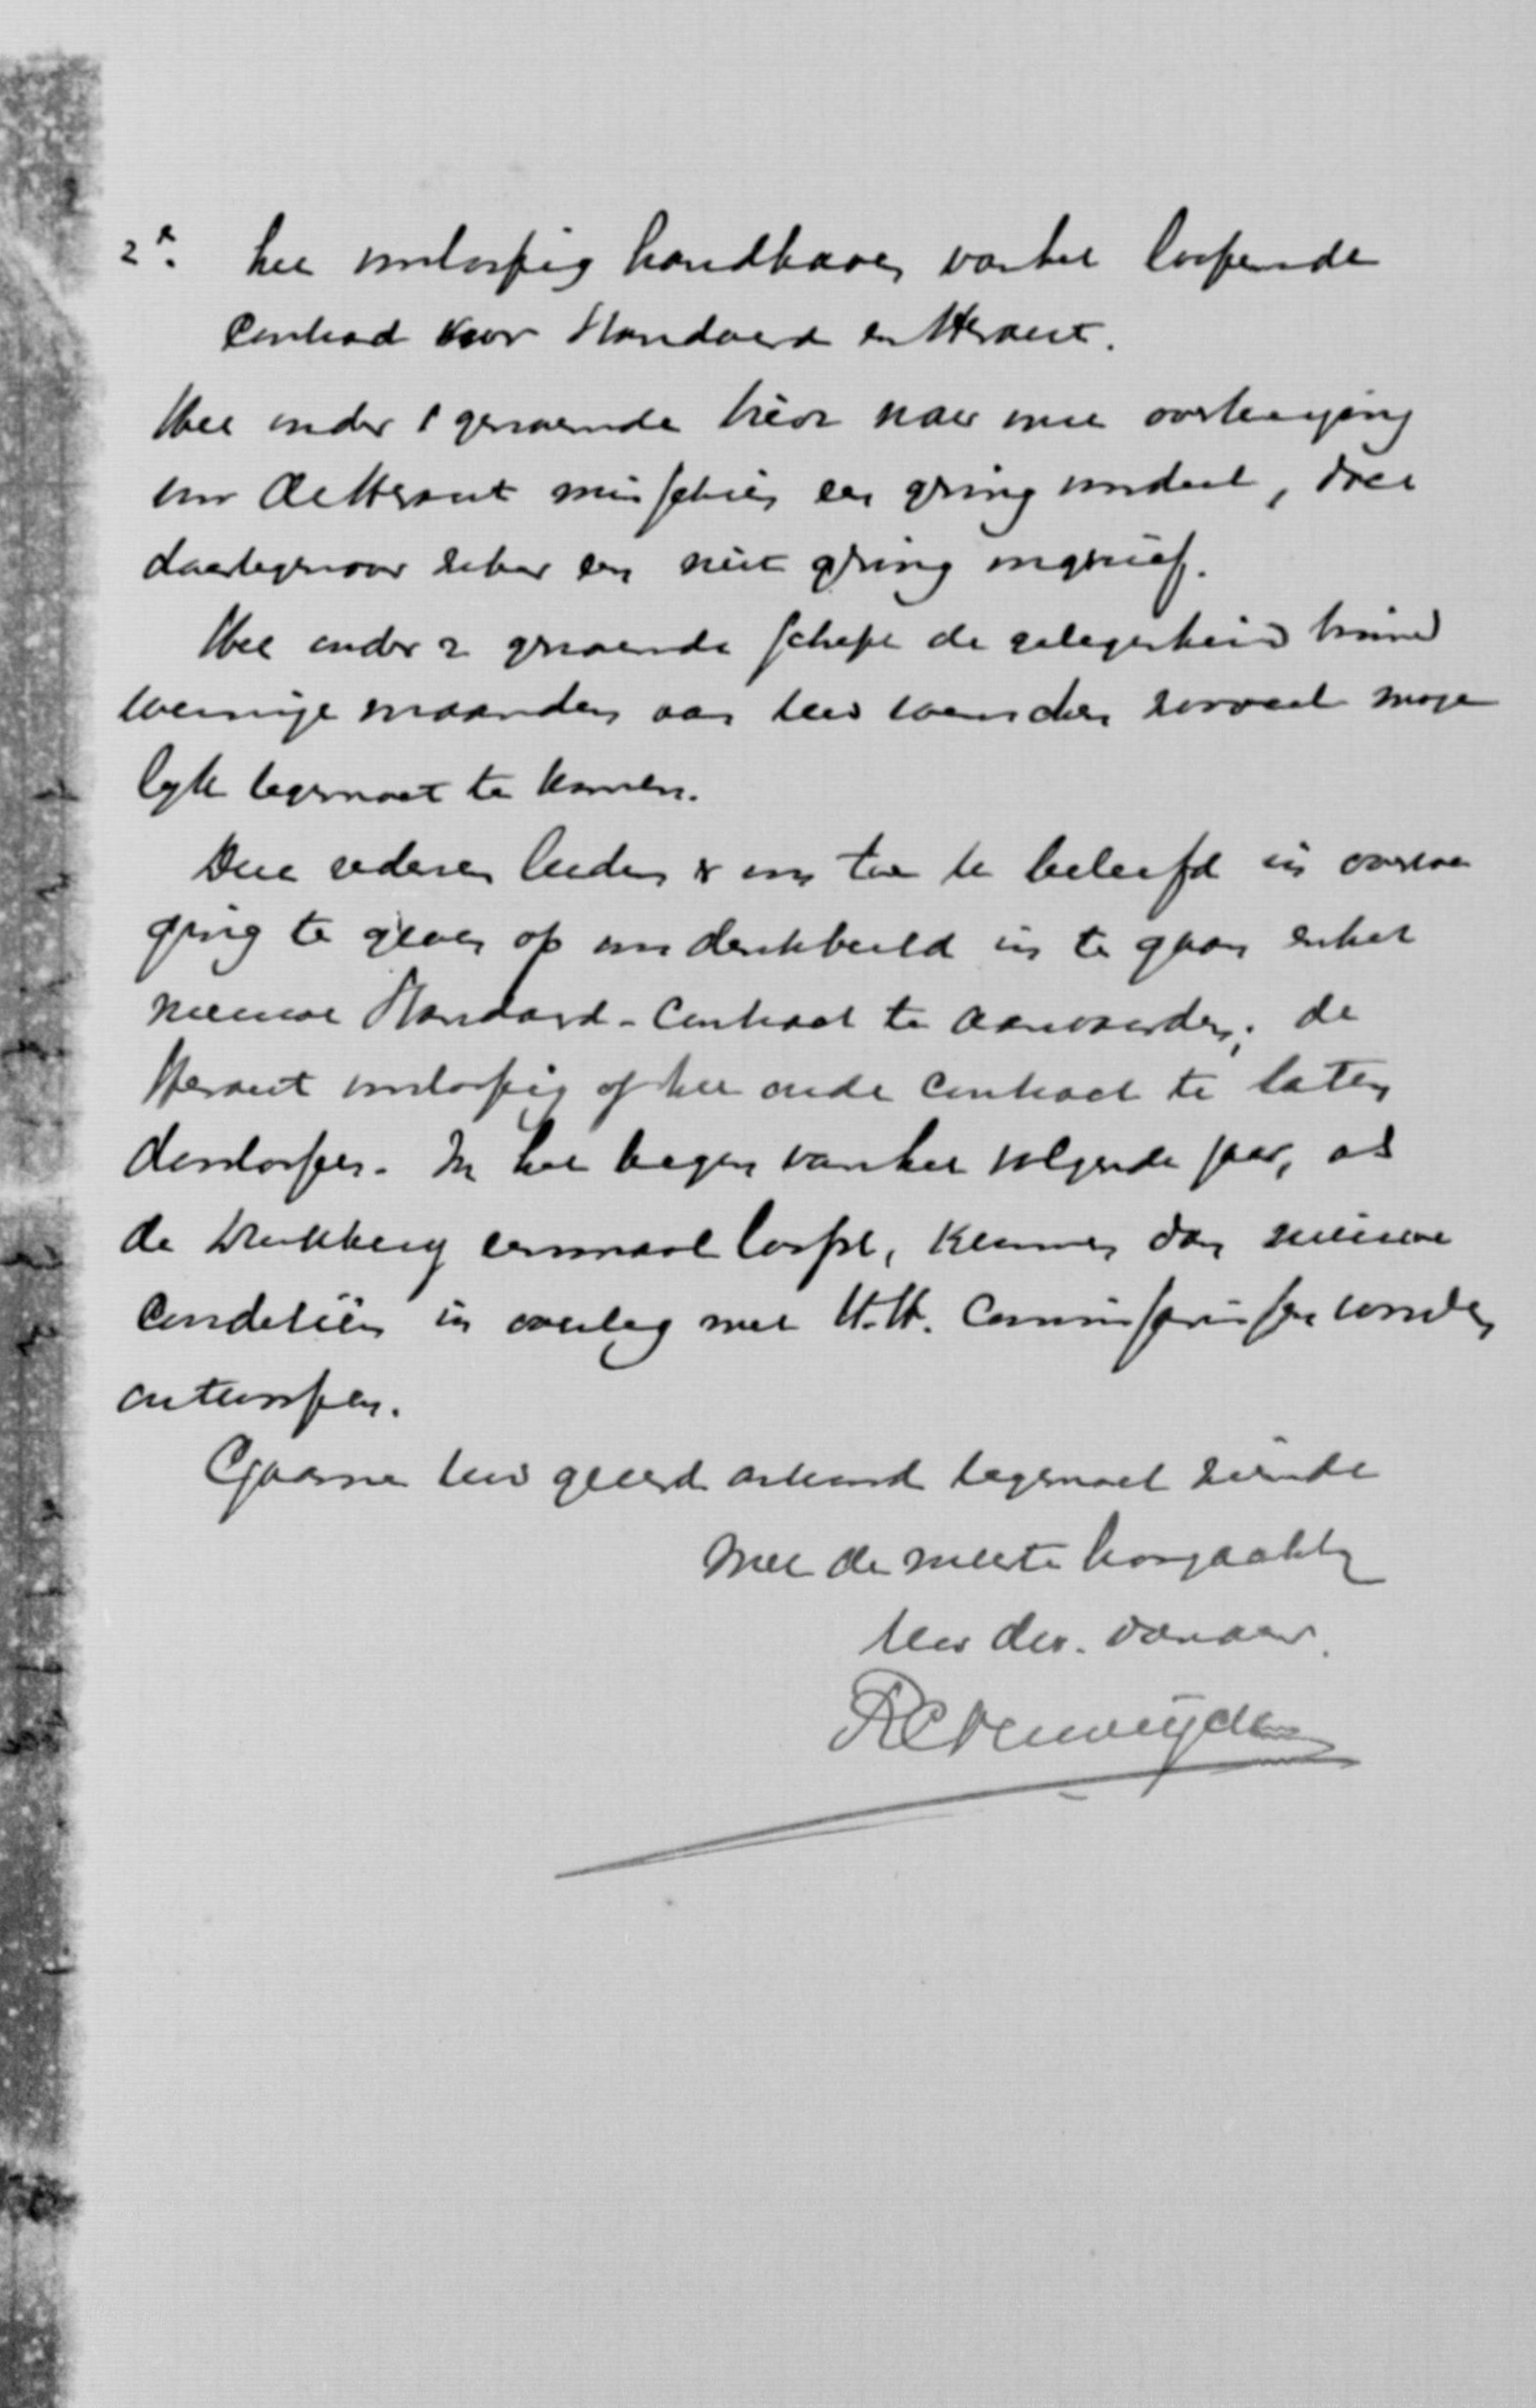 2e. het voorloopig handhaven van het loopende
Contract voor Standaard en Heraut.
Het onder 1 genoemde biedt naar mijn overtuiging
voor de Heraut misschien een gering voordeel, doch
daartegenover zeker een niet gering ongerief.
Het onder 2 genoemde schept de gelegenheid binnen
weinige maanden aan Uw wenschen zooveel moge
lijk tegemoet te komen.
Deze redenen leiden er mij toe U beleefd in overwe
ging te geven op mijn denkbeeld in te gaan en het
nieuwe Standaard-Contract te aanvaarden; de
Heraut voorloopig op het oude contract te laten
doorloopen. In het begin van het volgende jaar, als
de drukkerij eenmaal loopt, kunnen dan nieuwe
Conditiën in overleg met H.H. Commissarissen worden
ontworpen.
Gaarne Uw geëerd antwoord tegemoet ziende
Met de meeste hoogachting
Uw dw. dienaar.